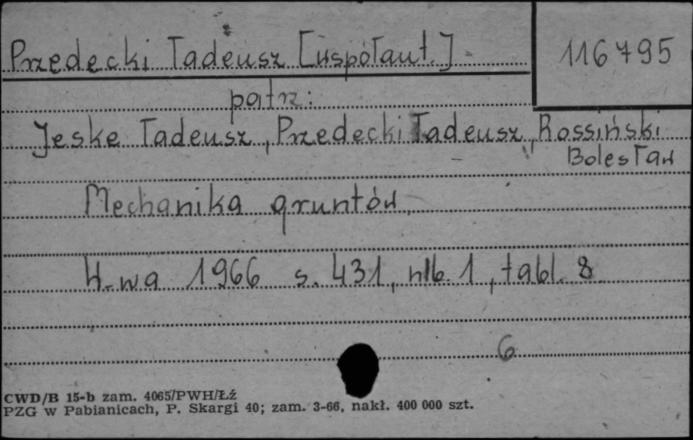 Przedecki Tadeusz [współaut.]
116795
patrz:
Jeske Tadeusz, Przedecki Tadeusz, Rossiński
Bolesław
Mechanika gruntów
W-wa 1966 s. 431, nlb. 1, tabl. 8
6
CWD/B 15-b zam. 4065/PWH/Łź
PZG w Pabianicach, P. Skargi 40; zam. 3-66, nakł. 400 000 szt.